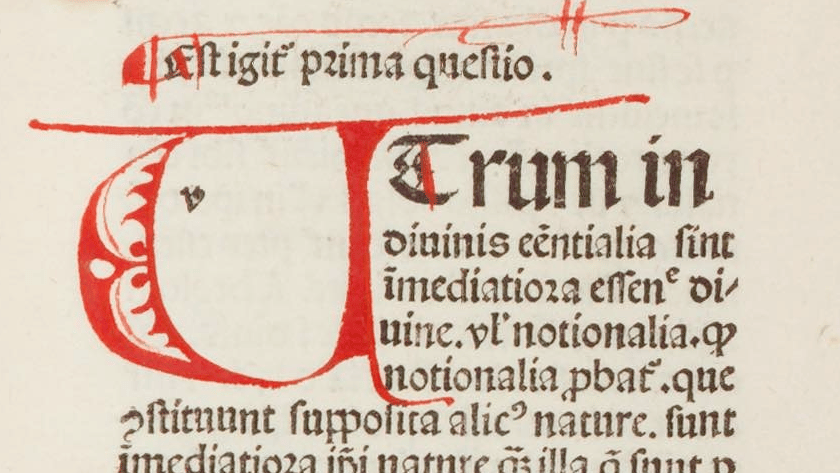 Est igit᷑ prima questio.
UTrum in
diuinis eēntialia sint
īmediatiora essenᵉ di⸗
uine. vl̓ notionalia. ꝙ
notionalia ꝓbat᷑. que
ꝯstituunt supposita alicꝰ nature. sunt
īmediatiora ip̄i nature qꝫ illa q̄ sunt p